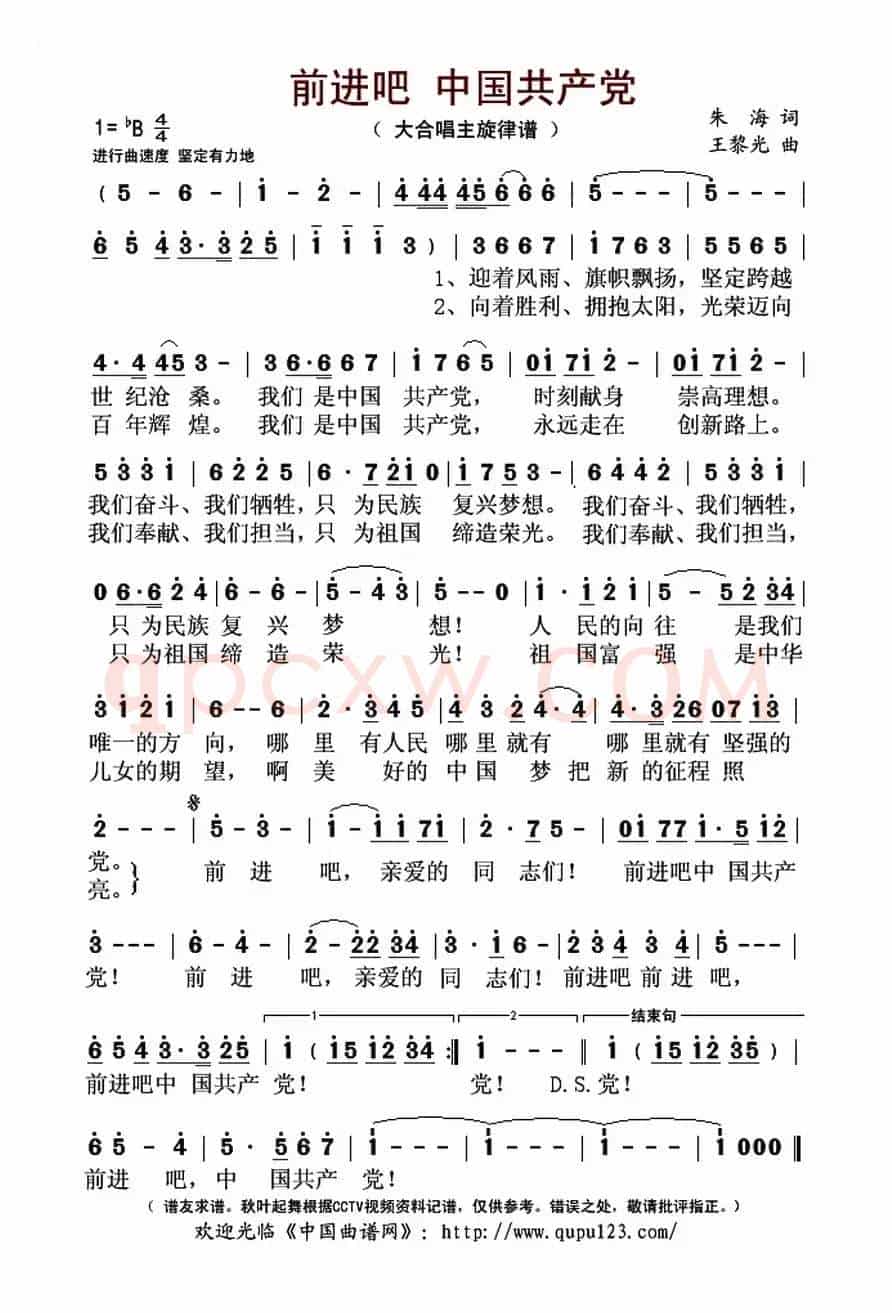 前进吧 中国共产党
1=♭B 4/4
（ 大合唱主旋律谱 ）
朱 海 词
王黎光 曲
进行曲速度 坚定有力地
( 5 - 6 - | 1 - 2 - | 4 44 45 6 6 6 | 5 - - - | 5 - - - |
6 5 4 3·3 2 5 | 1 1 1 3 ) | 3 6 6 7 | 1 7 6 3 | 5 5 6 5 |
1、迎着风雨、旗帜飘扬，坚定跨越
2、向着胜利、拥抱太阳，光荣迈向
4· 4 45 3 - | 3 6·6 6 7 | 1 7 6 5 | 01 71 2 - | 01 71 2 - |
世 纪沧 桑。 我们 是中国 共产党， 时刻献身 崇高理想。
百 年辉 煌。 我们 是中国 共产党， 永远走在 创新路上。
5 3 3 1 | 6 2 2 5 | 6 · 7 21 0 | 1 7 5 3 - | 6 4 4 2 | 5 3 3 1 |
我们奋斗、我们牺牲，只 为民族 复兴梦想。我们奋斗、我们牺牲，
我们奉献、我们担当，只 为祖国 缔造荣光。我们奉献、我们担当，
0 6·6 2 4 | 6 - 6 - | 5 - 4 3 | 5 - - 0 | 1 · 1 2 1 | 5 - 5 2 34 |
只 为民族 复 兴 梦 想！ 人 民的向 往 是我们
只 为祖国 缔 造 荣 光！ 祖 国富 强 是中华
qpcxw.com
3 1 2 1 | 6 - - 6 | 2 · 3 4 5 | 4 3 2 4·4 | 4·3 26 07 13 |
唯一的方 向，哪 里 有人民 哪里就有 哪里就有 坚强的
儿女的期 望，啊 美 好的 中国 梦 把 新 的征程 照
2 - - - | 5 - 3 - | 1 - 1 1 71 | 2 · 7 5 - | 01 77 1·5 12 |
党。 前 进 吧，亲爱的 同 志们！ 前进吧中 国共产
亮。
3 - - - | 6 - 4 - | 2 - 22 34 | 3 · 1 6 - | 2 34 3 4 | 5 - - - |
党！ 前 进 吧，亲爱的 同 志们！前进吧 前 进 吧，
1 2 结束句
6 5 4 3·3 25 | 1 ( 15 12 34 :‖ 1 - - - ‖ 1 ( 15 12 35 ) |
前进吧中 国共产 党！ 党！ D.S.党！
6 5 - 4 | 5 · 5 6 7 | 1 - - - | 1 - - - | 1 - - - | 1 0 0 0 ‖
前进 吧，中 国共产 党！
（ 谱友求谱。秋叶起舞根据CCTV视频资料记谱，仅供参考。错误之处，敬请批评指正。）
欢迎光临《中国曲谱网》：http://www.qupu123.com/